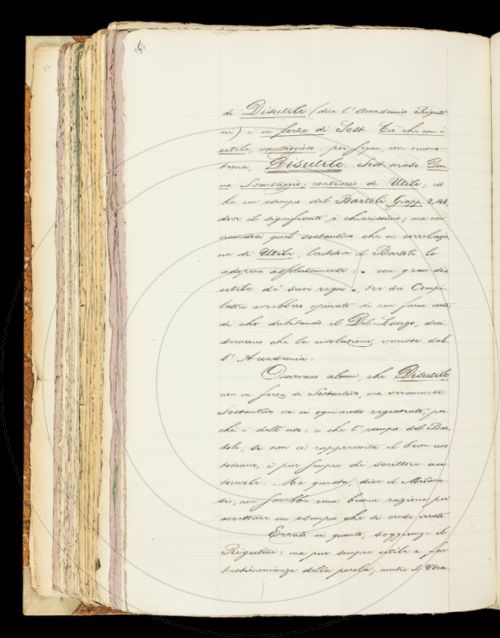 di Disutile (dice l'Accademico Riguti
ni) è in forza di Sost. Ciò che non è
utile, vantaggioso, per figura, un nuovo
tema, Disutile Sost. masc. Dan
no, Svantaggio; contrario di Utile, ed
ha un esempio del Bartoli Giapp. 2.148,
dove il significato è chiarissimo; ma non
quel sostantivo che in correlazio
ne di Utile, laddove il Bartoli lo
adopera assolutamente: con gran dis
utile di suoi regni. Tre dei Compi
latori avrebbero opinato di non farne
di che dubitando il Del-Lungo,
che la risoluzione venisse dal
l'Accademia.
Osservano alcuni, che Disutile,
non in forza di Sostantivo, ma veramente
Sostantivo va in ogni modo registrato, per
chè è dell'uso; e che l'esempio del Bar
toli, se non ci rappresenta il buon uso
toscano, è pur sempre di scrittore au
torevole. Ma questa, dice il
non sarebbe una buona ragione per
accettare un esempio che si crede errato.
Errato in quanto, soggiunge il
Rigutini; ma pur sempre utile a far
testimonianza della parola, mentre il